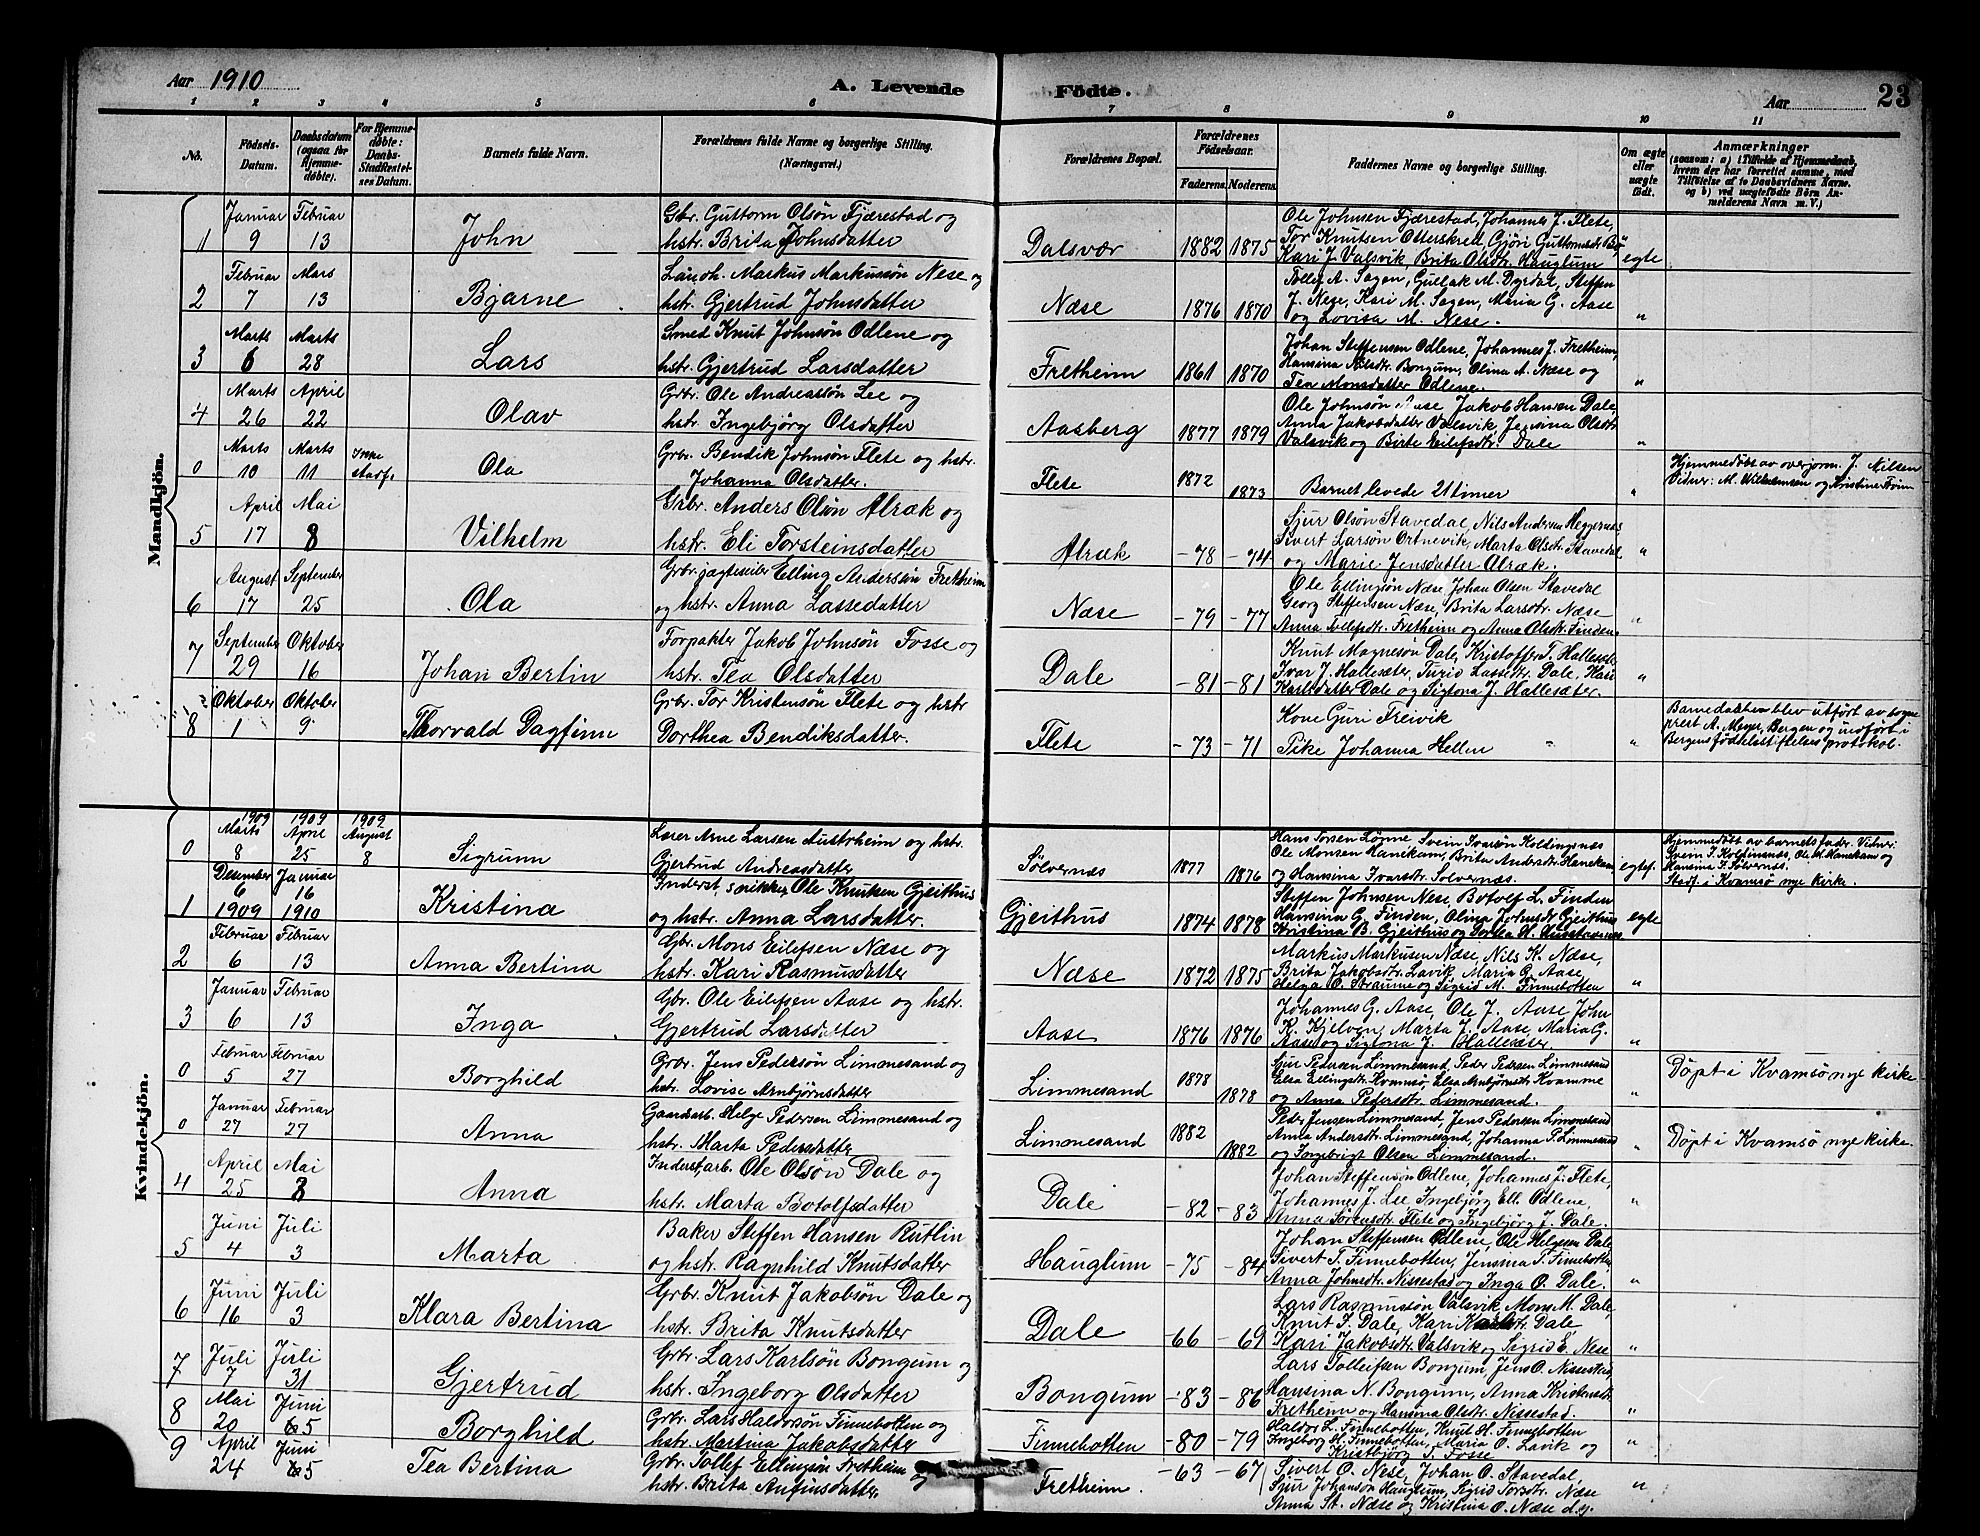 Aar 1910
A. Levende Födte.
Aar
23
1 2 3 4 5 6 7 8 9 10 11
No.
Födsels-Datum.
Daabsdatum (ogsaa for Hjemmedöbte).
For Hjemmedöbte: Daabs-Stadfæstelses Datum.
Barnets fulde Navn.
Forældrenes fulde Navne og borgerlige Stilling. (Næringsvei.)
Forældrenes Bopæl.
Forældrenes Födselsaar.
Faderens. Moderens.
Faddernes Navne og borgerlige Stilling.
Om ægte eller uægte födt.
Anmærkninger
(saasom: a) i Tilfælde af Hjemmedaab, hvem der har forrettet samme, med Tilföielse af to Daabsvidners Navne, og b) ved uægtefödte Börn Anmelderens Navn m. V.)
Mandkjön.
1 Januar 9 Februar 13 John
Gbr. Guttorm Olsön Fjærestad og
hstr. Brita Johnsdatter
Dalsvær 1882 1875
Ole Johnsen Fjærestad, Johannes J. Flete,
Tor Knutsen Otterskred, Gjöri Guttormsdtr. Bö
Kari J. Valsvik, Brita Olsdtr. Hauglum
egte
2 Februar 7 Mars 13 Bjarne
Landh. Markus Markussön Nese og
hstr. Gjertrud Johnsdatter
Næse 1876 1870
Tollef A. Sagen, Gullak M. Dyrdal, Steffen
J. Nese, Kari M. Sagen, Maria G. Aase
og Lovisa M. Nese.
"
3 Marts 6 Marts 28 Lars
Smed Knut Johnsön Odlene og
hstr. Gjertrud Larsdatter
Fretheim 1861 1870
Johan Steffensen Odlene, Johannes J. Fretheim,
Hansina Nilsdtr. Bongum, Olina A. Næse og
Tea Monsdatter Odlene.
"
4 Marts 26 April 22 Olav
Grbr. Ole Andreassön Lee og
hstr. Ingebjörg Olsdatter
Aasberg 1877 1879
Ole Johnsön Aase, Jakob Hansen Dale,
Anna Jakobsdatter Valsvik, Jensina Olsdtr.
Valsvik og Birte Eilefsdtr. Dale
"
0 Marts 10 Marts 11 Ikke stadf. Ola
Grbr. Bendik Johnsön Flete og hstr.
Johanna Olsdatter.
Flete 1872 1873
Barnet levede 21 timer
"
Hjemmedöbt av overjorm. J. Nilsen
Vidner: M. Vilhelmsen og Kristine Fröim
5 April 17 Mai 8 Vilhelm
Grbr. Anders Olsön Alræk og
hstr. Eli Torsteinsdatter
Alræk -78 -74
Sjur Olsön Stavedal, Nils Andersen Heggernæs
Sivert Larsön Ortnevik, Marta Olsdtr. Stavedal
og Marie Jensdatter Alræk.
"
6 August 17 September 25 Ola
Grbr. jagteseiler Elling Andersön Fretheim
og hstr. Anna Lassedatter
Næse -79 -77
Ole Ellingsön Næse, Johan Olsen Stavedal
Georg Steffensen Næse, Brita Larsdtr. Næse
Anna Tollefsdtr. Fretheim og Anna Olsdtr. Finden.
"
7 September 29 Oktober 16 Johan Bertin
Forpakter Jakob Johnsön Fosse og
hstr. Tea Olsdatter
Dale -81 -81
Knut Magnesön Dale, Kristoffer T. Hallesæter
Ivar J. Hallesæter, Turid Lassedtr. Dale, Kari
Karlsdatter Dale og Sigtona J. Hallesæter.
"
8 Oktober 1 Oktober 9 Thorvald Dagfinn
Grbr. Tor Kristensön Flete og hstr
Dorthea Bendiksdatter.
Flete -73 -71
Kone Guri Freivik
Pike Johanna Hellen
"
Barnedaaben blev utfört av sogne
prest A. Meyer, Bergen og indfört i
Bergens födselsstiftelses protokol.
Kvindekjön.
0 1909 Marts 8 1909 April 25 1909 August 8 Sigrunn
Lærer Arne Larsen Austrheim og hstr.
Gjertrud Andreasdatter
Sölvernæs 1877 1876
Hans Torsen Lönne, Svein Ivarsön Holdingsnæs
Ole Monsen Hanekam, Brita Andrsdtr. Hanekam
og Hansina Ivarsdtr. Sölvernæs.
egtef.
Hjemmedöbt av barnets fader. Vidner:
Svein I. Holdingsnæs, Ole M. Hanekam og
Hansina I. Sölvernæs.
Stadf. i Kvamsö nye kirke.
1 Desember 6 1909 Januar 16 1910 Kristina
Inderst, snikker, Ole Knutsen Gjeithus
og hstr. Anna Larsdatter.
Gjeithus 1874 1878
Steffen Johnsen Nese, Botolf L. Finden
Hansina G. Finden, Olina Johnsdtr. Gjeithus
Kristina B. Gjeithus og
egte
2 Februar 6 Februar 13 Anna Bertina
Gbr. Mons Eilefsen Næse og
hstr. Kari Rasmusdatter
Næse 1872 1875
Markus Markusen Næse, Nils K. Næse,
Brita Jakobsdtr. Lavik, Maria G. Aase,
Helga O. Straume og Sigrid M. Finnebotten
"
3 Januar 6 Februar 13 Inga
Gbr. Ole Eilefsen Aase og hstr.
Gjertrud Larsdatter
Aase 1876 1876
Johannes G. Aase, Ole J. Aase, John
K. Kjelvegn, Marta J. Aase, Maria G.
Aase og Sigtona J. Hallesæter.
"
0 Februar 5 Februar 27 Borghild
Grbr. Jens Pedersön Limmesand og
hstr. Lovise Arnbjörnsdatter
Limmesand 1878 1878
Sjur Pedersen Limmesand, Peder Pedersen Limmesand
Elsa Ellingsdtr. Kvamsö, Elsa Arnbjörnsdtr. Kvamme
og Anna Pedersdtr. Limmesand.
"
Döpt i Kvamsö nye kirke
0 Januar 27 Februar 27 Anna
Gaardarb. Helge Pedersen Limmesand og
hstr. Marta Pedersdatter
Limmesand 1882 1882
Peder Jensen Limmesand, Jens Pedersen Limmesand
Anna Andersdtr. Limmesand, Johanna P. Limmesand
og Ingebrigt Olsen Limmesand.
"
Döpt i Kvamsö nye kirke.
4 April 25 Mai 8 Anna
Inderst, arb. Ole Olsön Dale og
hstr. Marta Botolfsdatter
Dale -82 -83
Johan Steffensön Odlene, Johannes J. Flete,
Johannes J. Lee, Ingebjörg Ell. Odlene,
Anna Sörensdtr. Flete og Ingebjörg J. Dale.
"
5 Juni 4 Juli 3 Marta
Baker Steffen Hansen Rutlin
og hstr. Ragnhild Knutsdatter
Hauglum -75 -84
Johan Steffensen Odlene, Ole Helgesen Dale
Sivert T. Finnebotten, Jensina T. Finnebotten
Anna Johnsdtr. Nissestad og Inga O. Dale.
"
6 Juni 16 Juli 3 Klara Bertina
Grbr. Knut Jakobsön Dale og
hstr. Brita Knutsdatter
Dale -66 -69
Lars Rasmussön Valsvik, Mons M. Dale,
Knut I. Dale, Kari Karlsdtr. Dale
Kari Jakobsdtr. Valsvik og Sigrid E. Nese
"
7 Juli 7 Juli 31 Gjertrud
Grbr. Lars Karlsön Bongum og
hstr. Ingeborg Olsdatter
Bongum -83 -86
Lars Tolleifsen Bongum, Jens O. Nissestad
Hansina N. Bongum, Anna Kristensdtr.
Fretheim og Hansina Olsdtr. Nissestad.
"
8 Mai 20 Juni 5 Borghild
Grbr. Lars Haldorsön Finnebotten og
hstr. Martina Jakobsdatter
Finnebotten -80 -79
Haldor L. Finnebotten, Knut H. Finnebotten
Ingeborg H. Finnebotten, Maria O. Lavik og
Kristbjörg T. Fosse
"
9 April 24 Juni 5 Tea Bertina
Grbr. Tollef Ellingsön Fretheim og
hstr. Brita Anfinsdatter.
Fretheim. -63 -67
Sivert O. Nese, Johan O. Stavedal,
Sjur Johansön Hauglum, Sigrid Torsdtr. Næse
Anna St. Næse og Kristina O. Næse d.y.
"